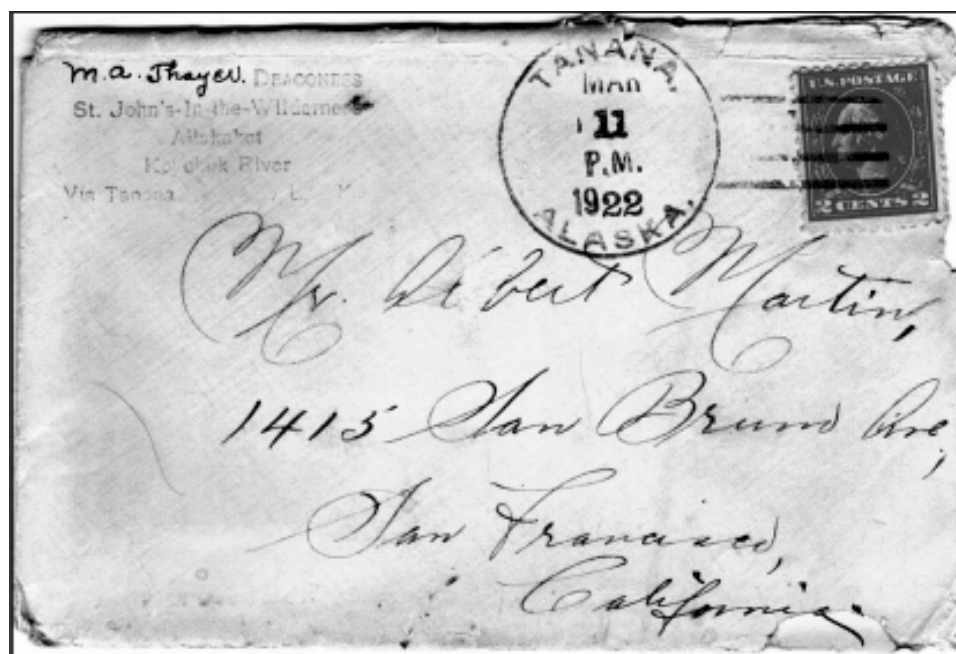 M. A. Thayer. DEACONESS
St. John's-In-the-Wilderness
Allakaket
River
Via Tanana
TANANA,
MAR
11
P.M.
1922
ALASKA.
U.S. POSTAGE
2 CENTS 2
Mr. Martin,
1415 San Bruno Ave,
San Francisco,
California